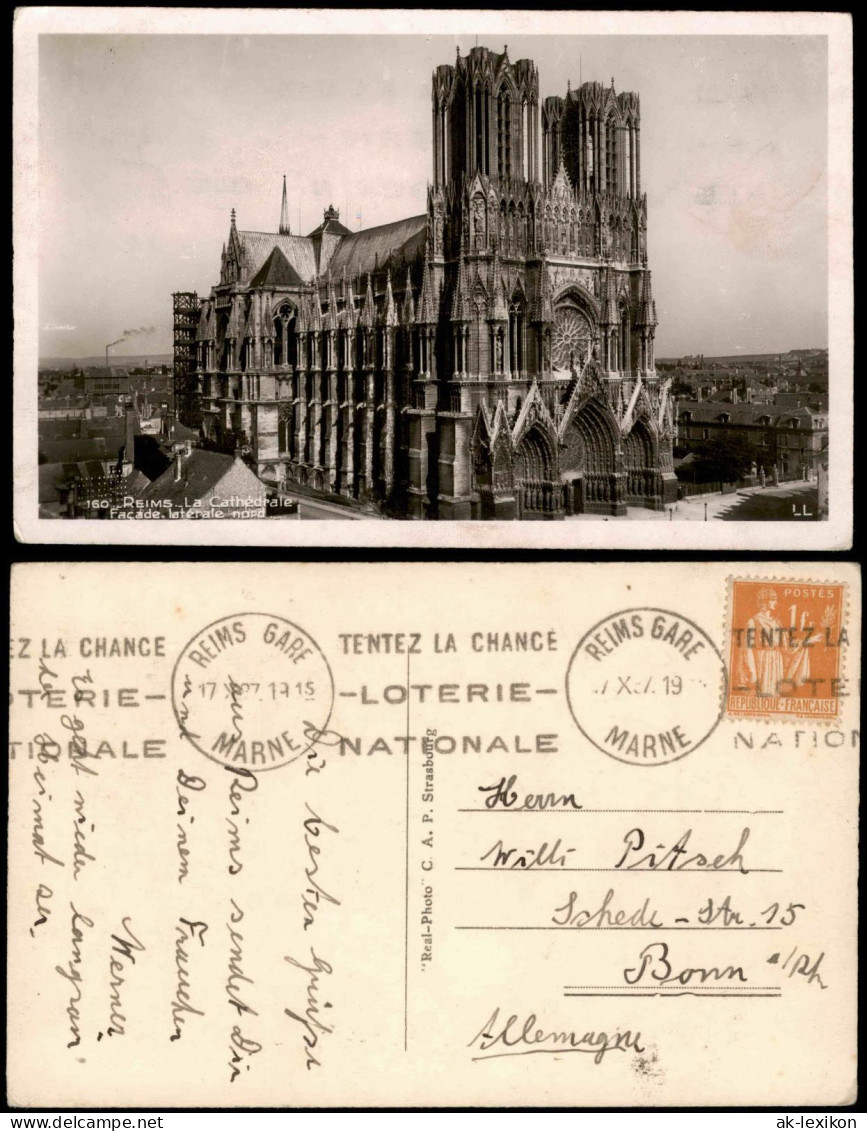 160 REIMS _ La Cathédrale
Façade latérale nord
LL
EZ LA CHANCE
OTERIE
TIONALE
REIMS GARE
17 X 37. 19 15
MARNE
TENTEZ LA CHANCE
-LOTERIE-
NATIONALE
REIMS GARE
7 X 37. 19
MARNE
TENTEZ LA
LOTE
NATION
POSTES
1F
REPUBLIQUE-FRANÇAISE
Die besten Grüße
aus Reims sendet Dir
und Deinem Frauchen
Werner
es geht wieder langsam
der Heimat zu.
"Real-Photo" C. A. P. Strasbourg
Herrn
Willi Pitsch
Schede-Str. 15
Bonn a/Rh
Allemagne
ak-lexikon